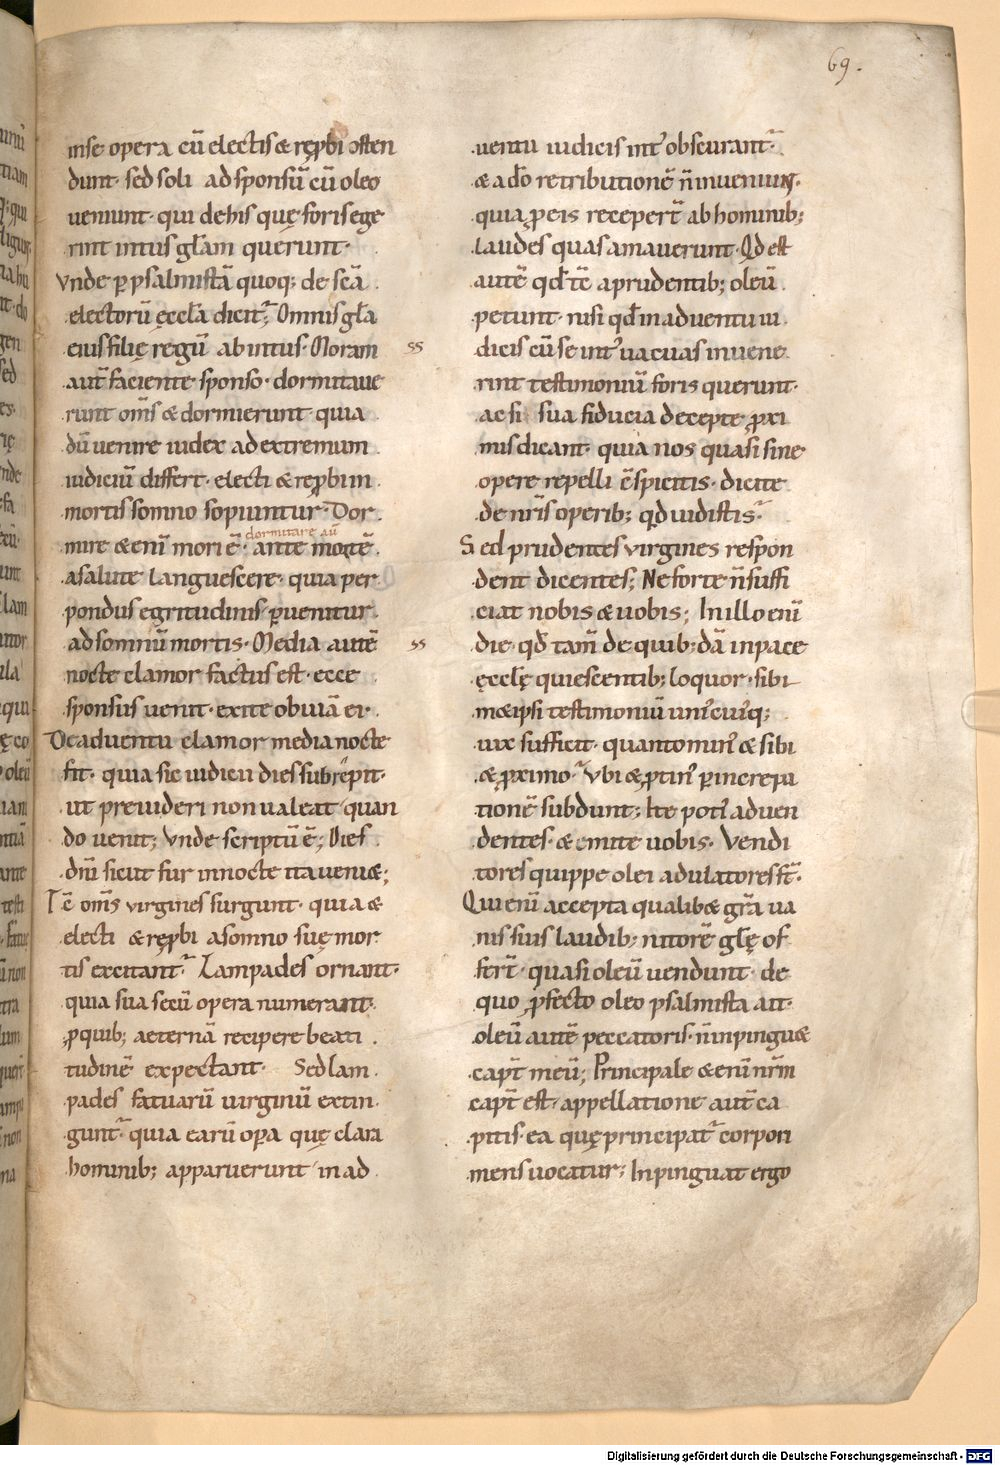 69.
inse opera cū electis & rep̄bi osten
dunt· sed soli ad sponsū cū oleo
ueniunt· qui de his quę foris ege
rint intus gl̄am querunt·
Vnde p psalmistā quoq; de scā
electorū ęccl̄a dicit᷑; Omnis gl̄a
eius filię regū ab intus· Moram
aut̄ faciente sponso· dormitaue
runt om̄s & dormierunt· quia
dū uenire iudex ad extremum
iudiciū differt· electi & rep̄bi in
mortis somno sopiuntur· Dor
dormitare aū
mire & eni̅ mori ē· ante mortē
a salute languescere· quia per
pondus egritudinis puenitur
ad somnū mortis· Media autē
nocte clamor factus est· ecce
sponsus uenit· exite obuiā ei·
De aduentu clamor media nocte
fit· quia sic iudicii dies subrepit·
ut preuideri non ualeat quan
do uenit; Vnde scriptū ē; Dies
dn̄i sicut fur in nocte ita ueni&;
Tc̄ om̄s virgines surgunt· quia &
electi & rep̄bi a somno suę mor
tis excitant᷑· Lampades ornant·
quia sua secū opera numerant·
p quib; aeternā recipere beati
tudinē expectant· Sed lam
pades fatuarū uirginū extin
gunt᷑· quia earū opa quę clara
hominib; apparuerunt in ad
uentu iudicis int᷑ obscurant᷑·
& a do̅ retributionē n̄ inueniunt·
quia p eis recepert̄ ab hominib;
laudes quas amauerunt· Qd est
autē qd̄ tc̄ a prudentib; oleū
petunt· nisi qd̄ in aduentu iu
dicis cū se int᷑ uacuas inuene
rint testimoniū foris querunt·
ac si sua fiducia decepte p̱xi
mis dicant· quia nos quasi sine
opere repelli c̄spicitis· dicite
de nr̄is operib; qd uidistis·
Sed prudentes virgines respon
dent dicentes; Ne forte n̄ suffi
ciat nobis & uobis; In illo enī
die· qd̄ tam̄ de quib;dā in pace
ęccl̄ę quiescentib; loquor· sibi
m&ipsi testimoniū unicuiq;
uix sufficit· quanto min᷒ & sibi
& p̱ximo· Vbi & p̱tin᷒ p increpa
tionē subdunt; Ite poti᷒ ad uen
dentes· & emite uobis· Vendi
tores quippe olei adulatores st̄·
Qui enī accepta qualib& gr̄a ua
nis suis laudib; nitorē gl̄ę of
fert̄· quasi oleū uendunt· de
quo p̱fecto oleo psalmista ait·
oleū autē peccatoris· n̄ inpingu&
cap̄t meū; Principale & enī nr̄m
cap̄t est· appellatione aut̄ ca
pitis· ea quę principat᷑ corpori
mens uocatur; Inpinguat ergo
ss
ss
Digitalisierung gefördert durch die Deutsche Forschungsgemeinschaft - DFG